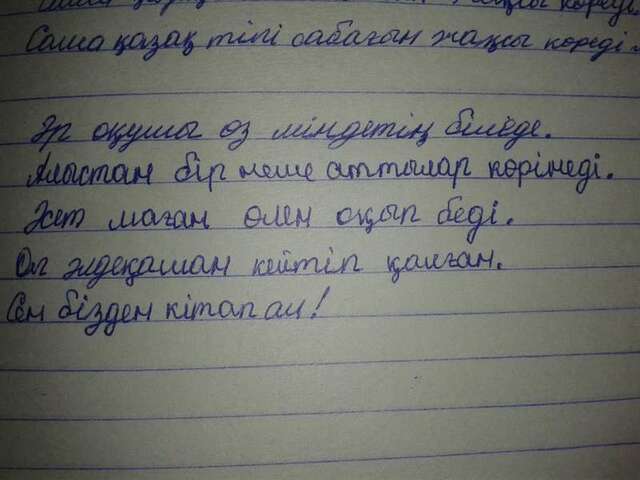 жақсы көреді.
Саша қазақ тілі сабағын жақсы көреді.
Әр оқушы өз міндетің біледе.
Алыстан бір неше аттылар көрінеді.
Әсет маған өлең оқып беді.
Ол әлдеқашан кейтіп қалған.
Сен бізден кітап ал!